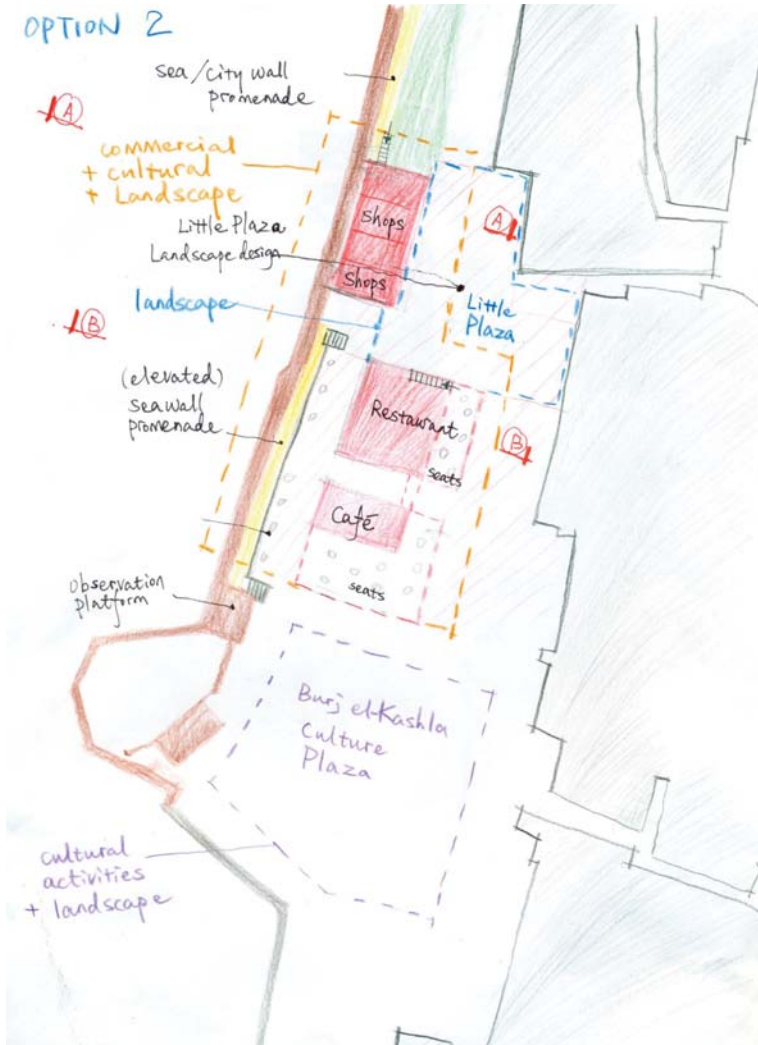 OPTION 2
sea/city wall
promenade
A
commercial
+ cultural
+ Landscape
Shops
Little Plaza
Landscape design
A
Shops
landscape
Little
Plaza
B
(elevated)
sea wall
promenade
Restaurant
B
seats
Café
seats
observation
platform
Burj el-Kashla
culture
Plaza
cultural
activities
+ landscape